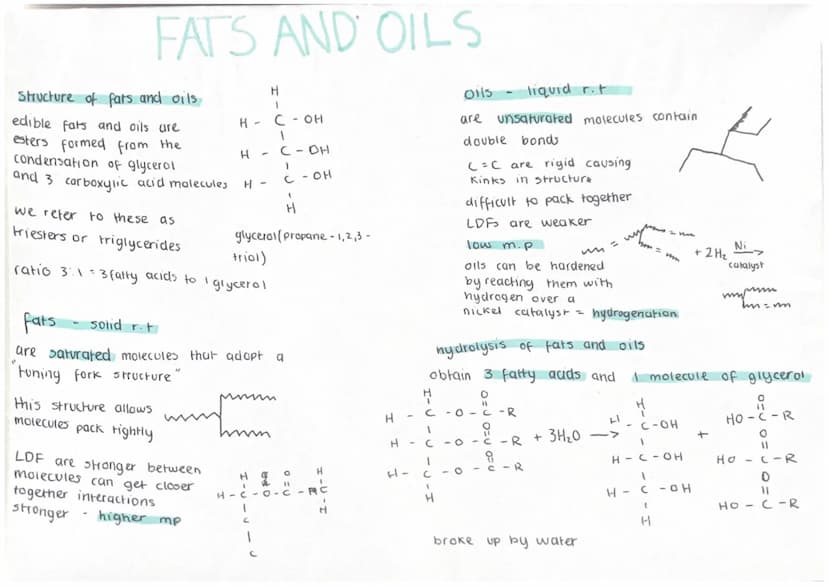 FATS AND OILS
structure of fats and oils
edible fats and oils are
esters formed from the
condensation of glycerol
and 3 carboxylic acid molecules
we refer to these as
triesters or triglycerides
ratio 3:1 = 3 fatty acids to 1 glycerol
H
H - C - OH
H - C - OH
H - C - OH
H
glycerol (propane-1,2,3-
triol)
fats - solid r.t
are saturated molecules that adopt a
"tuning fork structure"
this structure allows
molecules pack tightly
LDF are stronger between
molecules can get closer
together interactions
stronger - higher mp
oils - liquid r.t
are unsaturated molecules contain
double bonds
C=C are rigid causing
kinks in structure
difficult to pack together
LDFs are weaker
low m.p
oils can be hardened
by reacting them with
hydrogen over a
nickel catalyst = hydrogenation
+ 2H₂ Ni
catalyst
hydrolysis of fats and oils
obtain 3 fatty acids and 1 molecule of glycerol
H O
H - C - O - C - R
O
H - C - O - C - R + 3H₂O →
O
H - C - O - C - R
H
H
H - C - OH
H - C - OH
H - C - OH
H
+
O
HO - C - R
O
HO - C - R
O
HO - C - R
broke up by water